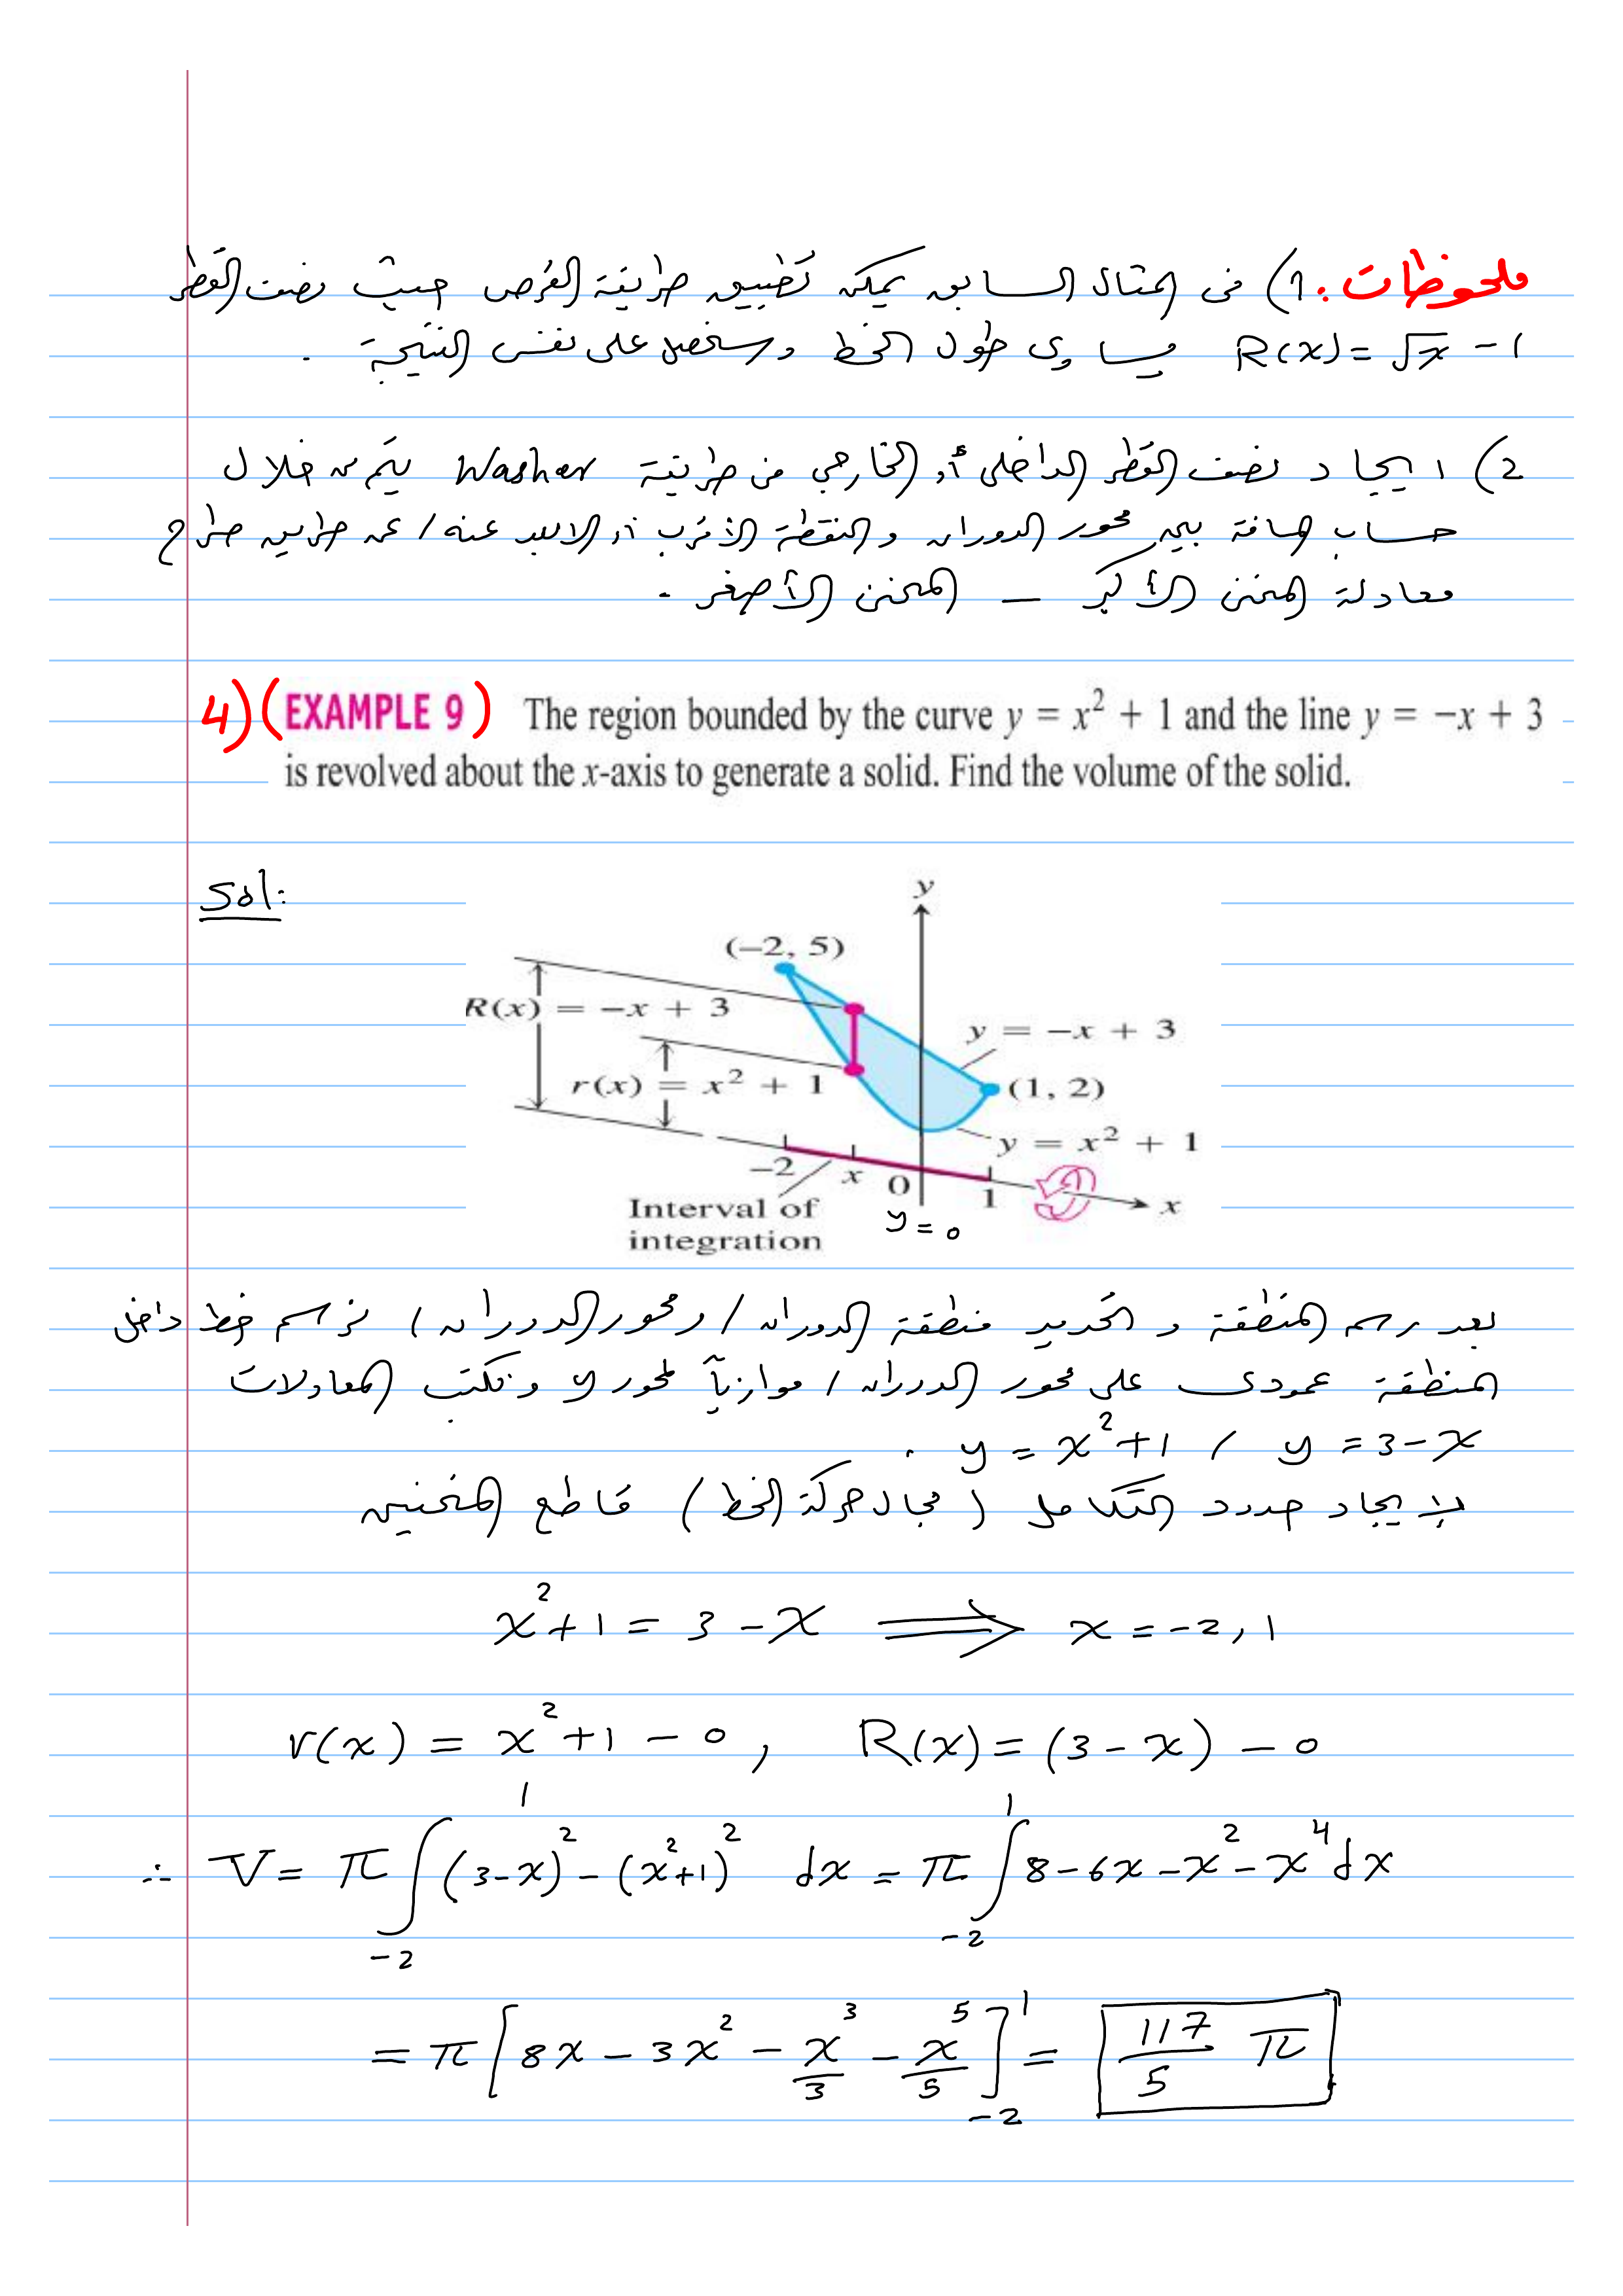 ملحوظات: 1) في المثال السابق يمكن تطبيق طريقة القرص حيث نصف القطر
R(x) = √x - 1 يساوي طول الخط وسنحصل على نفس النتيجة .
2) ايجاد نصف القطر الداخلي أو الخارجي في طريقة Washer يتم من خلال
حساب المسافة بين محور الدوران والنقطة الأقرب أو الابعد عنه / عن طريق طرح
معادلة المنحنى الأكبر - المنحنى الأصغر .
4) (EXAMPLE 9) The region bounded by the curve y = x² + 1 and the line y = −x + 3
is revolved about the x-axis to generate a solid. Find the volume of the solid.
Sol:
y
(−2, 5)
R(x) = −x + 3
y = −x + 3
r(x) = x² + 1
(1, 2)
y = x² + 1
−2 x 0 1 x
Interval of
integration
y = 0
بعد رسم المنطقة و تحديد منطقة الدوران / ومحور الدوران / نرسم خط داخل
المنطقة عمودي على محور الدوران / موازياً لمحور y ونكتب المعادلات
y = 3 - x / y = x² + 1 .
لإيجاد حدود التكامل (مجال حركة الخط) تقاطع المنحنيين
x² + 1 = 3 - x ⟹ x = -2, 1
r(x) = x² + 1 - 0 , R(x) = (3 - x) - 0
∴ V = π ∫₋₂¹ (3-x)² - (x²+1)² dx = π ∫₋₂¹ 8 - 6x - x² - x⁴ dx
= π [8x - 3x² - x³/3 - x⁵/5]₋₂¹ = 117/5 π